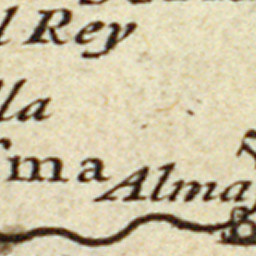 l Rey
lla
ma
Alma